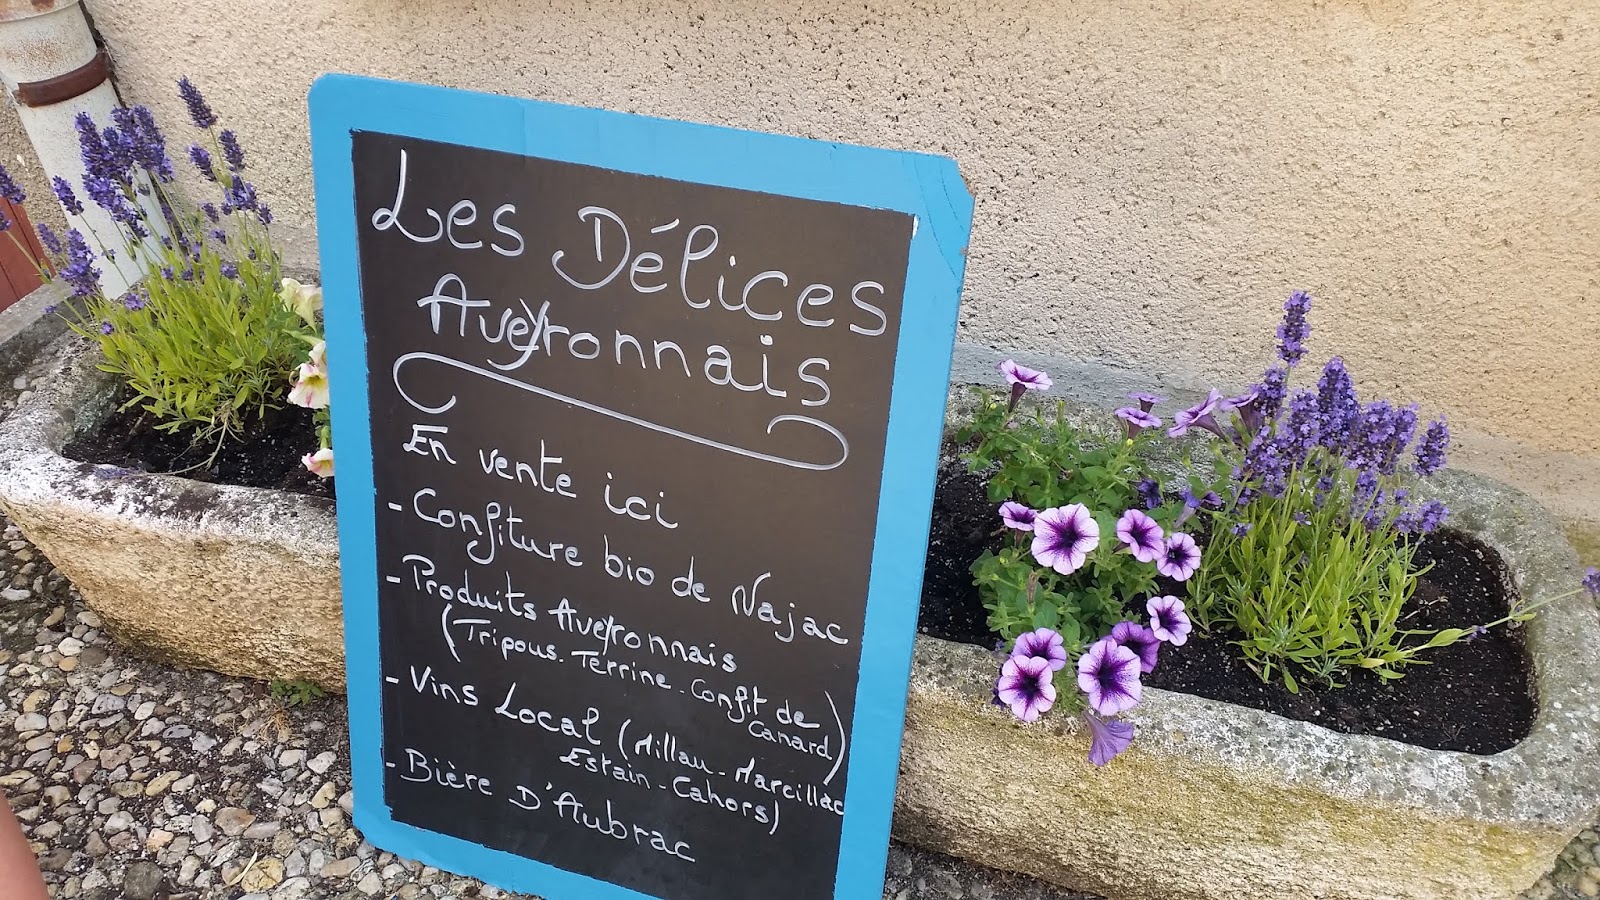 Les Délices
Aveyronnais
En vente ici
- Confiture bio de Najac
- Produits Aveyronnais
(Tripous. Terrine - Confit de
Canard)
- Vins Local (Millau - Mareillac
Estain - Cahors)
- Bière D'Aubrac